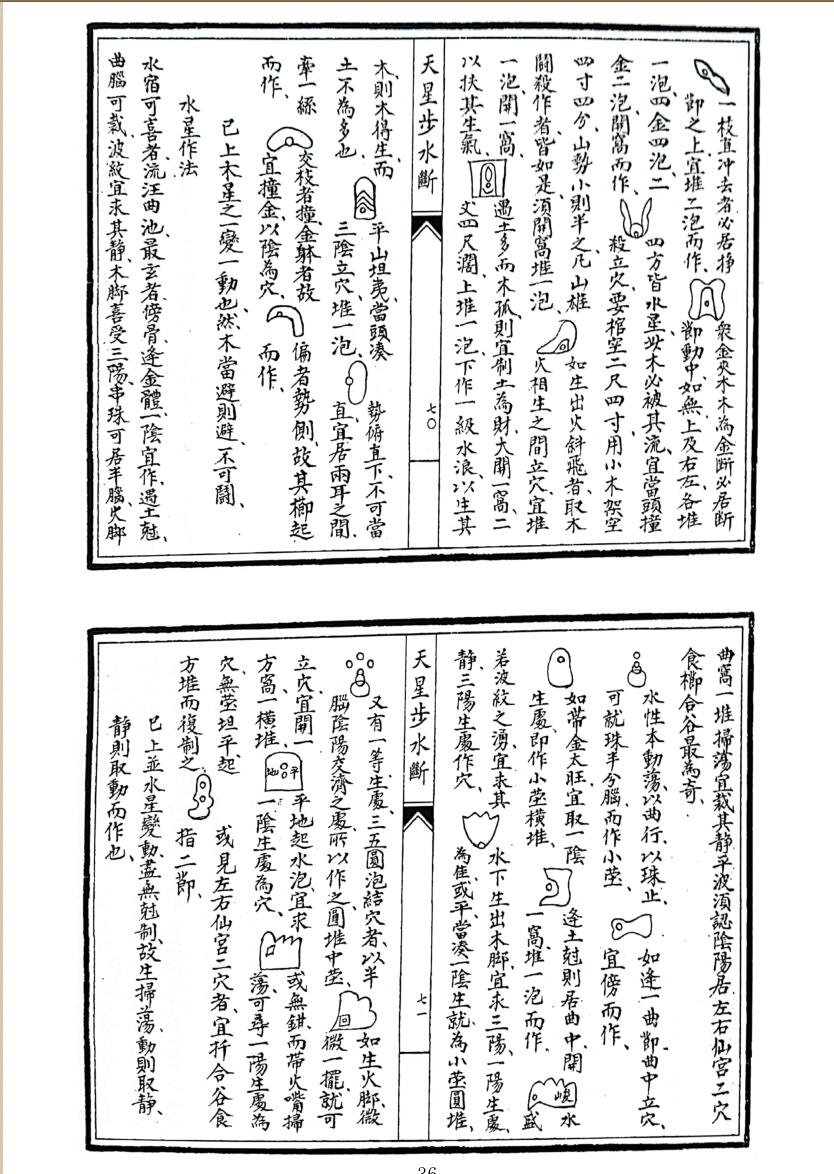 一枝直冲去者必居掙
節之上宜堆二泡而作、
衆金夾木木為金斷必居断
節動中如無上及右左各堆
一泡四金四泡二
金二泡開窩而作、
四方皆水星此木必被其流宜當頭撞
殺立穴要棺空二尺四寸用小木架空
四寸四分山勢小則半之凡山雄
鬪殺作者皆如是須開窩堆一泡、
如生出火斜飛者取木
火相生之間立穴宜堆
一泡開一窩、
以扶其生氣、
遇土多而木孤則宜制土為財大開一窩二
丈四尺濶上堆一泡下作一級水浪以生其
木則木得生而
土不為多也、
平山坦夷當頭湊
三陰立穴堆一泡、
勢俯直下不可當
直宜居兩耳之間、
牽一絲
而作、
交枝者撞金躰者故
宜撞金以陰為穴、
偏者勢側故其櫛起
而作、
已上木星之一變一動也然木當避則避不可鬪、
水星作法
水宿可喜者流汪曲池最玄者傍骨逢金體一陰宜作遇土尅、
曲腦可裁波紋宜求其静木脚喜受三陽串珠可居半腦火脚
天星步水斷
七〇
曲窩一堆掃蕩宜裁其静平波須認陰陽居左右仙宮二穴
食櫛合谷最為奇、
水性本動蕩以曲行以珠止、
可就珠半分腦而作小塋、
如逢一曲節曲中立穴、
宜傍而作、
如帶金太旺宜取一陰
生處即作小塋橫堆、
逢土尅則居曲中開
一窩堆一泡而作、
峴
水
盛
若波紋之湧宜求其
静三陽生處作穴、
水下生出木脚宜求三陽一陽生處
為佳或平當湊一陰生就為小塋圓堆、
天星步水斷
七一
又有一等生處三五圓泡結穴者以半
腦陰陽交濟之處所以作之圓堆中塋、
如生火脚微
微一擺就可
立穴宜開一
方窩一橫堆、
平地
平地起水泡宜求
一陰生處為穴、
或無鉗而帶火嘴掃
蕩可尋一陽生處為
穴無塋坦平起
方堆而復制之
或見左右仙宮二穴者宜扦合谷食
指二節、
已上並水星變動盡無尅制故生掃蕩動則取静、
静則取動而作也、
36